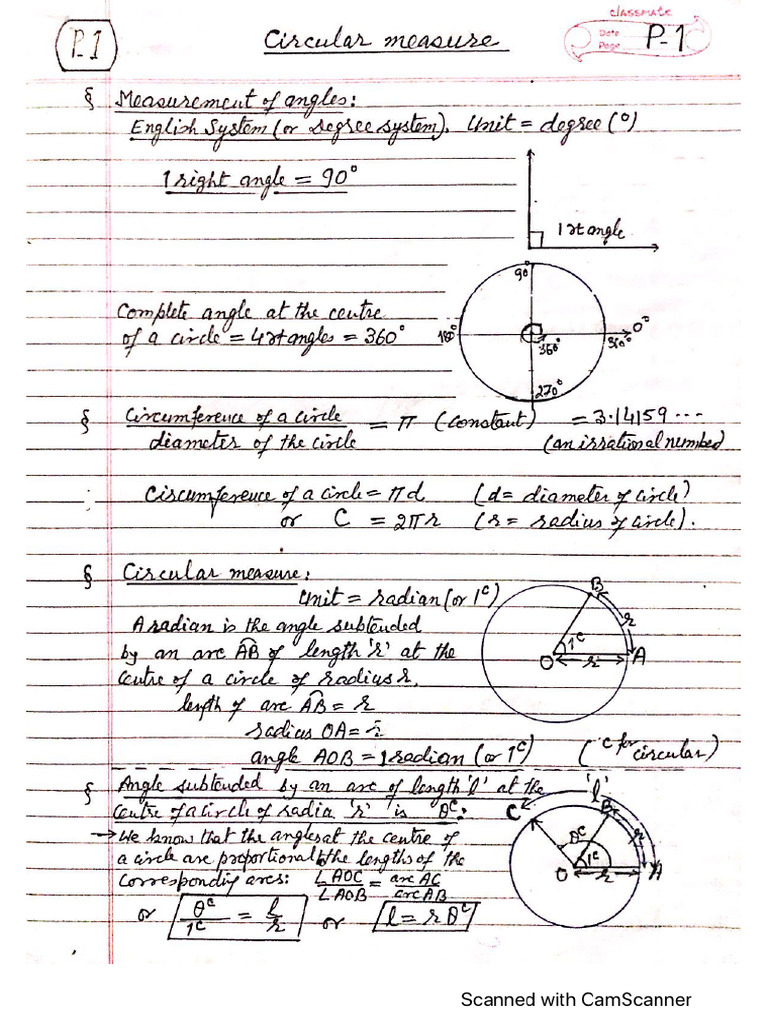 P.1
Circular measure
classmate
Date
Page
P-1
§ Measurement of angles:
English System (or Degree system). Unit = degree (°)
1 right angle = 90°
1 rt angle
90°
Complete angle at the centre
of a circle = 4 rt angles = 360°
180°
0°
360°
360°
270°
§ Circumference of a circle / diameter of the circle = π (constant) = 3.14159 ...
(an irrational number)
Circumference of a circle = πd (d = diameter of circle)
or C = 2πr (r = radius of circle).
§ Circular measure:
Unit = radian (or 1ᶜ)
A radian is the angle subtended
by an arc AB of length 'r' at the
centre of a circle of radius r.
length of arc AB = r
radius OA = r
angle AOB = 1 radian (or 1ᶜ) (ᶜ for circular)
B
r
1ᶜ
O
r
A
§ Angle subtended by an arc of length 'l' at the
centre of a circle of radia 'r' is θᶜ:
→ We know that the angles at the centre of
a circle are proportional to the lengths of the
corresponding arcs: ∠AOC / ∠AOB = arc AC / arc AB
or θᶜ / 1ᶜ = l / r or l = rθᶜ
'l'
C
B
r
θᶜ
1ᶜ
O
r
A
Scanned with CamScanner